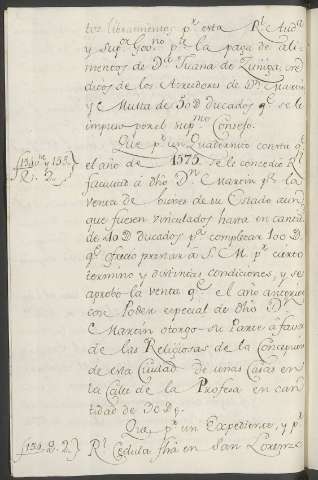 tos libramientos pr. esta Rl. Auda.
y Supor. Govno. pa. la paga de ali-
mentos de Da. Juana de Zuñiga, re-
ditos de los Acreedores de Dn. Martin
y Multa de 50 D ducados qe. se le
impuso por el supmo. Consejo.
Que pr. un Quadernito consta qe.
el año de 1575 se le concedió Rl.
facultad á dho Dn. Martin pa. la
venta de bienes de su Estado aun-
que fuesen vinculados hasta en cantid.
de 10 D ducados pa. completar 100 D.
qe. ofreció prestar á S. M. pr. cierto
termino y distintas condiciones, y se
aprobo la venta qe. el año anterior
con Poder especial de dho Dn.
Martin otorgo su Parte á favor
de las Religiosas de la Concepcion
de esta Ciudad de unas Casas en
la Calle de la Profesa en can-
tidad de 30 D ps.
Que pr. un Expediente, y pr.
f 159. Q. 2. Rl. Cedula fha en San Lorenzo